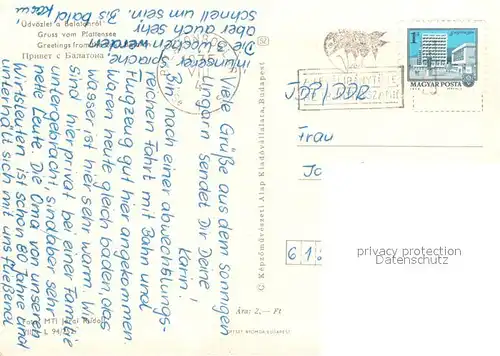 Üdvözlet a Balatonról
Gruss vom Plattensee
Greetings from
Привет с Балатона
Viele Grüße aus dem sonnigen
Ungarn sendet Dir Deine
Karin!
Bin nach einer abwechslungs-
reichen Fahrt mit Bahn und
Flugzeug gut hier angekommen.
Waren heute gleich baden, das
Wasser ist hier sehr warm. Wir
sind hier privat bei einer Familie
untergebracht, sind aber sehr
nette Leute. Die Oma von unseren
Wirtsleuten ist schon 80 Jahre und
unterhält sich mit uns fließend
in unserer Sprache.
Die 3 Wochen werden
aber auch sehr
schnell um sein. Bis bald
C. Képzőművészeti Alap Kiadóvállalata, Budapest
Ára: 2,— Ft
MTI
1Ft
MAGYAR POSTA
JOP/DDR
Frau
Jo
6 1 8
privacy protection
Datenschutz